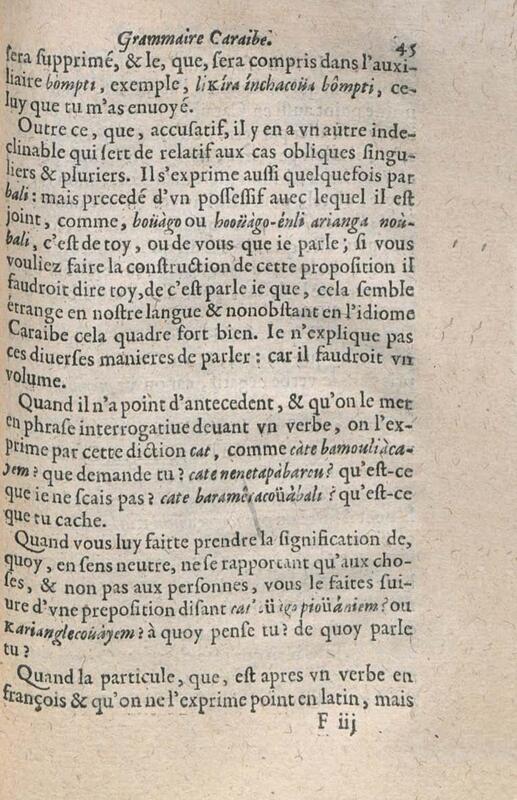 Grammaire Caraibe. 45
sera supprimé, & le, que, sera compris dans l'auxi-
liaire bômpti, exemple, likíra ínchacoüa bômpti, ce-
luy que tu m'as enuoyé.
Outre ce, que, accusatif, il y en a vn autre inde-
clinable qui sert de relatif aux cas obliques singu-
liers & pluriers. Il s'exprime aussi quelquefois par
bali : mais precedé d'vn possessif auec lequel il est
joint, comme, boüàgo ou hooüàgo-énli arianga noù-
bali, c'est de toy, ou de vous que ie parle ; si vous
vouliez faire la construction de cette proposition il
faudroit dire toy, de c'est parle ie que, cela semble
étrange en nostre langue & nonobstant en l'idiome
Caraibe cela quadre fort bien. Ie n'explique pas
ces diuerses manieres de parler : car il faudroit vn
volume.
Quand il n'a point d'antecedent, & qu'on le met
en phrase interrogatiue deuant vn verbe, on l'ex-
prime par cette diction cat, comme càte bamouliàca-
yem? que demande tu? cate nenetapàbarcu? qu'est-ce
que ie ne scais pas? cate baramêtacoüàbali ? qu'est-ce
que tu cache.
Quand vous luy faitte prendre la signification de,
quoy, en sens neutre, ne se rapportant qu'aux cho-
ses, & non pas aux personnes, vous le faites sui-
ure d'vne preposition disant ioüâniem? ou
Karianglecoùàyem? à quoy pense tu? de quoy parle
tu?
Quand la particule, que, est apres vn verbe en
françois & qu'on ne l'exprime point en latin, mais
F iij